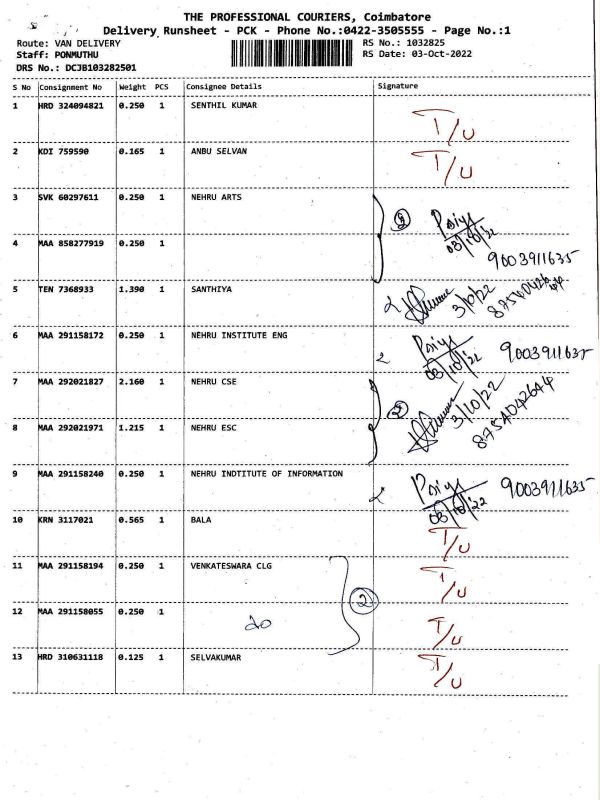 THE PROFESSIONAL COURIERS, Coimbatore
Delivery Runsheet - PCK - Phone No.:0422-3505555 - Page No.:1
Route: VAN DELIVERY RS No.: 1032825
Staff: PONMUTHU RS Date: 03-Oct-2022
DRS No.: DCJB103282501
S No Consignment No Weight PCS Consignee Details Signature
1 HRD 324094821 0.250 1 SENTHIL KUMAR T/U
2 KDI 759590 0.165 1 ANBU SELVAN T/U
3 SVK 60297611 0.250 1 NEHRU ARTS
Paiya
03/10/22
4 MAA 858277919 0.250 1
9003911635
5 TEN 7368933 1.390 1 SANTHIYA 3/10/22
6 MAA 291158172 0.250 1 NEHRU INSTITUTE ENG 9003911635
03/10/22
7 MAA 292021827 2.160 1 NEHRU CSE
3/10/22
8 MAA 292021971 1.215 1 NEHRU ESC
9 MAA 291158240 0.250 1 NEHRU INDTITUTE OF INFORMATION 9003911635
03/10/22
10 KRN 3117021 0.565 1 BALA T/U
11 MAA 291158194 0.250 1 VENKATESWARA CLG T/U
2
12 MAA 291158055 0.250 1 do T/U
13 HRD 310631118 0.125 1 SELVAKUMAR T/U